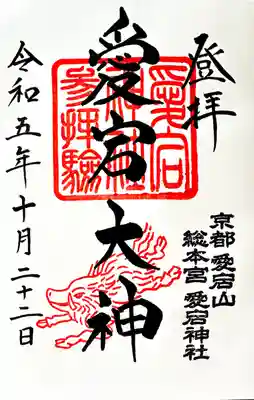 登拝
愛宕大神
令和五年十月二十二日
京都 愛宕山
総本宮 愛宕神社
愛宕
参拝驗